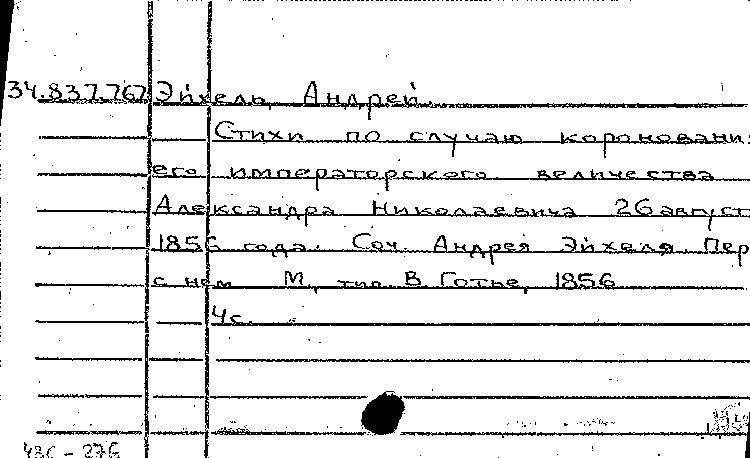 34.837.767 Эйхель, Андрей.
Стихи по случаю коронования
его императорского величества
Александра Николаевича 26 август
1856 года. Соч. Андрея Эйхеля. Пер
с нем М., тип. В. Готье, 1856
4с.
43С - 276